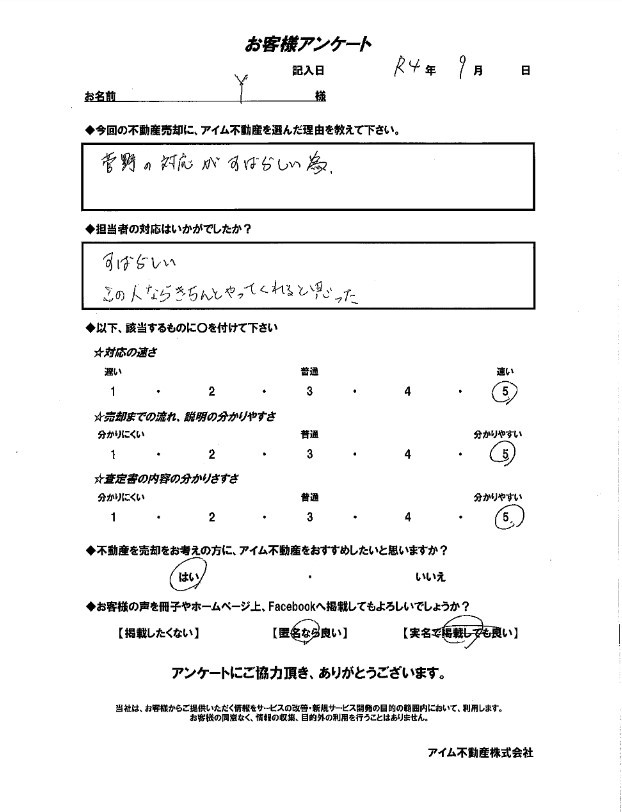 お客様アンケート
記入日 R4年 9月 日
お名前 Y 様
◆今回の不動産売却に、アイム不動産を選んだ理由を教えて下さい。
菅野の対応がすばらしい為.
◆担当者の対応はいかがでしたか？
すばらしい
この人ならきちんとやってくれると思った
◆以下、該当するものに〇を付けて下さい
☆対応の速さ
遅い 普通 速い
1 ・ 2 ・ 3 ・ 4 ・ 5
☆売却までの流れ、説明の分かりやすさ
分かりにくい 普通 分かりやすい
1 ・ 2 ・ 3 ・ 4 ・ 5
☆査定書の内容の分かりさすさ
分かりにくい 普通 分かりやすい
1 ・ 2 ・ 3 ・ 4 ・ 5
◆不動産を売却をお考えの方に、アイム不動産をおすすめしたいと思いますか？
はい ・ いいえ
◆お客様の声を冊子やホームページ上、Facebookへ掲載してもよろしいでしょうか？
【掲載したくない】 【匿名なら良い】 【実名で掲載しても良い】
アンケートにご協力頂き、ありがとうございます。
当社は、お客様からご提供いただく情報をサービスの改善・新規サービス開発の目的の範囲内において、利用します。
お客様の同意なく、情報の収集、目的外の利用を行うことはありません。
アイム不動産株式会社